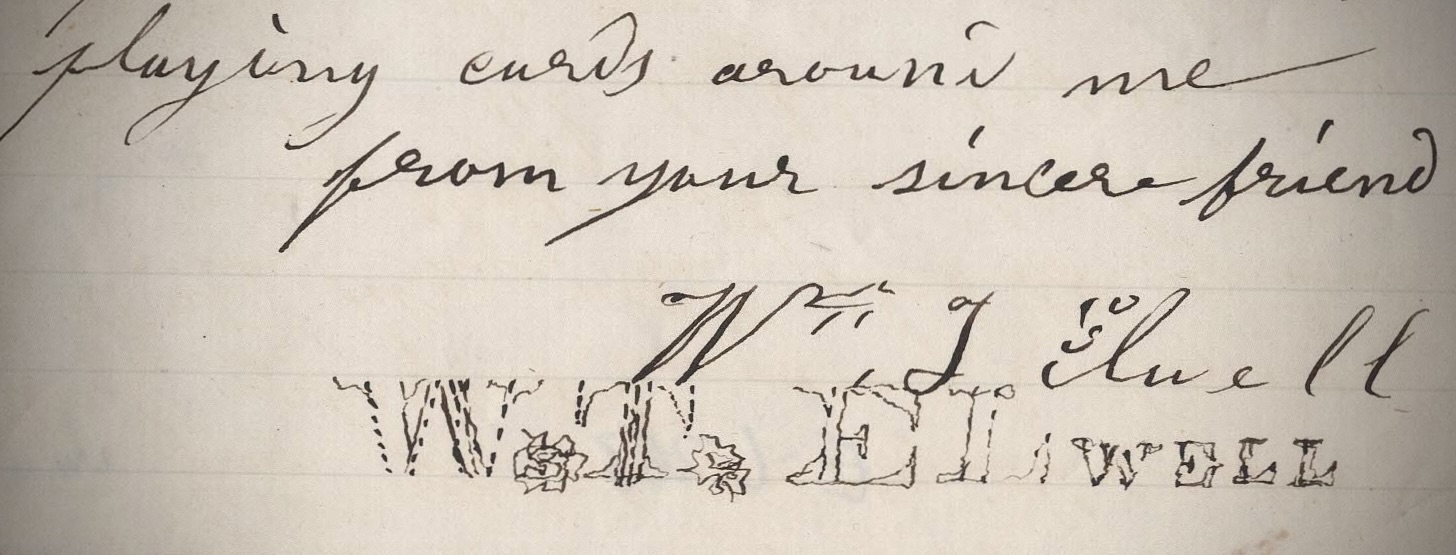 playing cards around me
from your sincere friend
Wm T Elwell
W. T. ELWELL